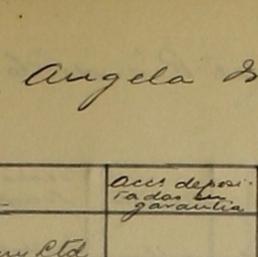 Angela
Acc.s deposi-
tadas em
garantia
Ltd